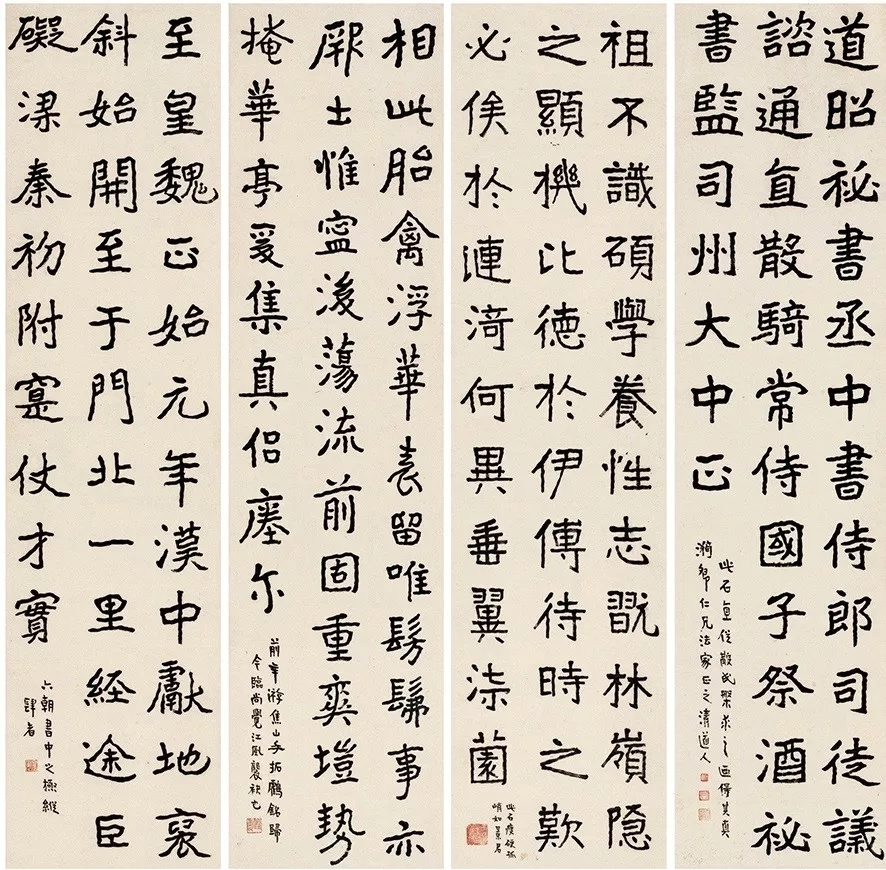 道昭祕書丞中書侍郎司徒議
諮通直散騎常侍國子祭酒祕
書監司州大中正
此石直從散氏槃求之迺得其真
仁兄法家正之清道人
祖不識碩學養性志翫林嶺隐
之顯機比德於伊傅待時之歎
必俟於漣漪何異垂翼柒園
此石瘦硬孤
峭如景君
相此胎禽浮華表留唯髣髴事亦
厞士惟寧後蕩流前固重爽塏勢
掩華亭爰集真侶瘞尒
前年游焦山手拓鶴銘歸
今臨尚覺江風襲袂也
至皇魏正始元年漢中獻地襃
斜始開至于門北一里経途巨
礙梁秦初附寔仗才實
六朝書中之極縱
肆者